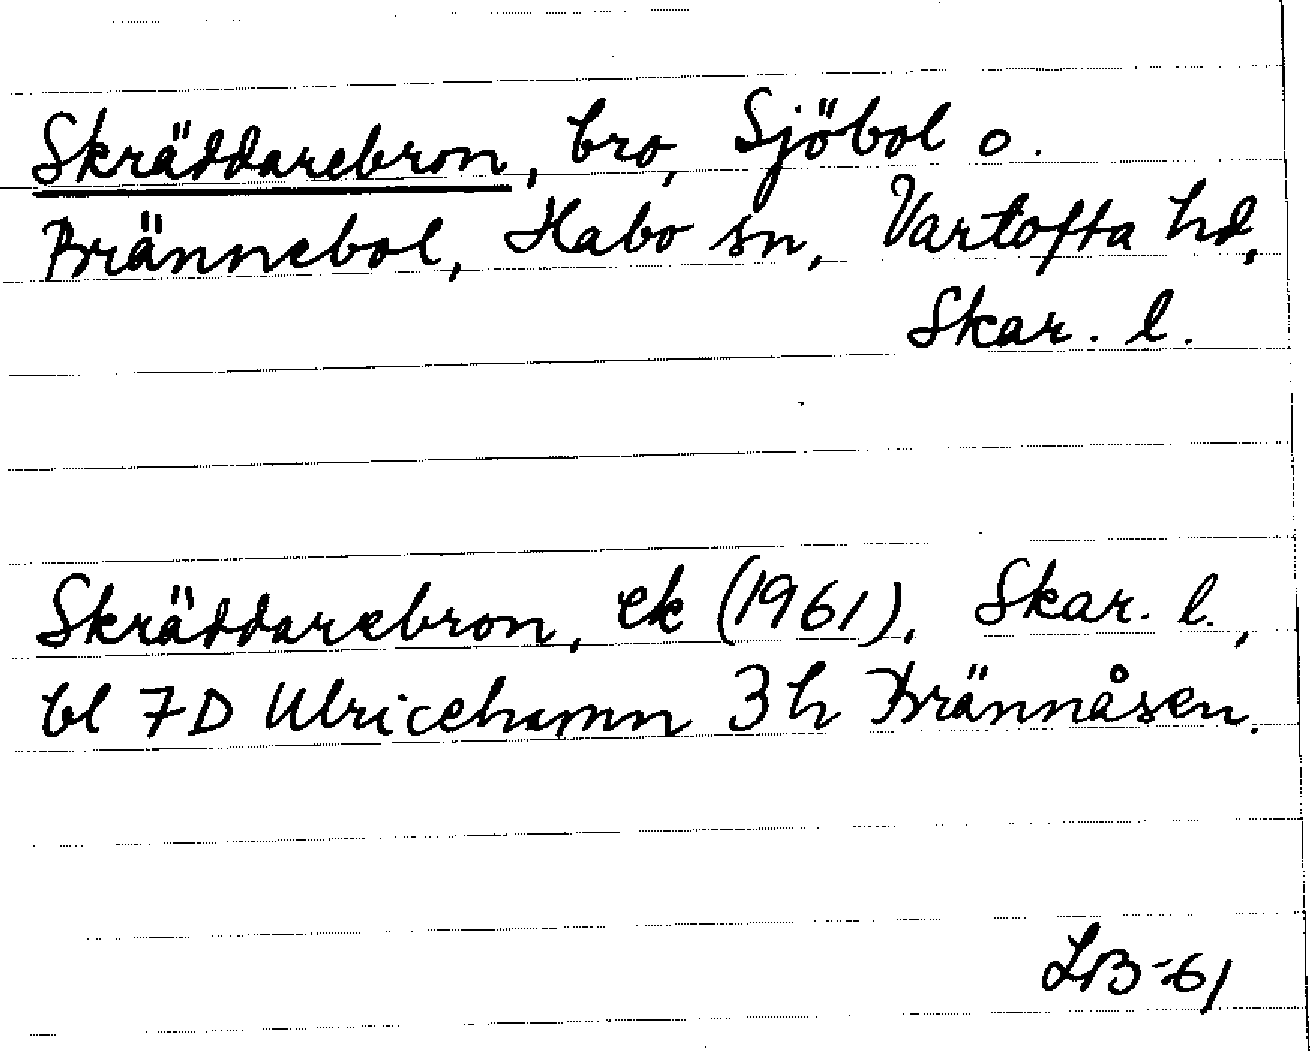 Skräddarebron, bro, Sjöbol o.
Brännebol, Habo sn, Vartofta hd,
Skar. l.
Skräddarebron, ek (1961), Skar. l.,
bl 7D Ulricehamn 3 h Brännåsen.
LB-61